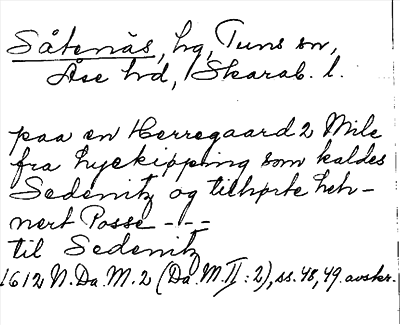 Såtenäs, hg, Tuns sn,
Åse hd, Skarab. l.
paa en Herregaard 2 Mile
fra Lyckipping som kaldes
Sedenitz og tilhørte Leh-
nert Posse - - -
til Sedenitz
1612 N. Da. M. 2 (Da. M. II: 2), ss. 48, 49. avskr.